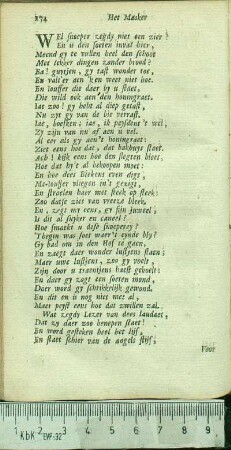 174 Het Masker
WEl snoeper zegdy niet een zier?
En u den soeten inval hier,
Meend gy te vollen heel den schoot
Met lekker dingen zander brood?
Ba! guytjen, gy tast wonder toe,
En valt er aen 'ken weet niet hoe.
En louffer die daer by u staet,
Die wild ook aen den honingraet.
Iat zoo! gy hebt al diep getast,
Nu zyt gy van de bie verrast.
Iae, boefken: iae, ik peysden't wel,
Zy zijn van nu af aen u vel.
Al eer als gy aen't honingraet:
Ziet eens hoe dat, dat bakhuys staet.
Ach! kijk eens hoe den slegten bloet,
Hoe dat hy't al bekoopen moet:
En hoe dees Biekens even digt,
Me-louffer vliegen in't gezigt,
En straelen haer met steek op steek:
Zoo datje ziet van vreeze bleek.
En, zegt my eens, gy sijn juweel,
Is dit al suyker en caneel?
Hoe smaekt u dese snoepery?
't Begin was soet waer't eynde bly?
Gy had om in den Hof te gaen,
En zaegt daer wonder lustjens staen;
Maer uwe lustjens, zoo gy voelt,
Zijn door u traentjens haest gekoelt:
En daer gy zogt een soeten mond,
Daer word gy schrikkelijk gewond.
En dit en is nog niet met al,
Maer peyst eens hoe dat zwillen zal.
Wat zegdy Lezer van dees laudaet,
Dat zy daer zoo benepen staet!
En word gesteken heel het lijf,
En staet schier van de angels stijf;
Voor
KbK EVP:32
1 2 3 4 5 6 7 8 9